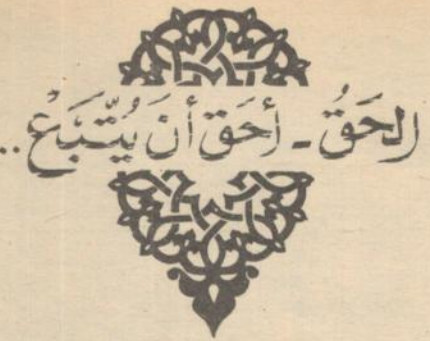 الحَقُّ - أحَق أنَ يُتّبَعْ..